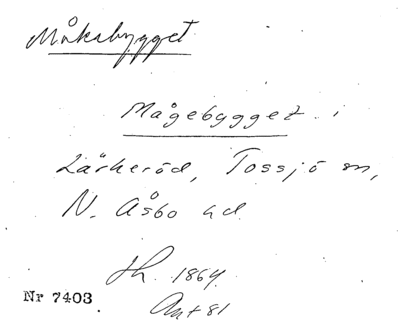 Måkabygget
Mågebygget i
Lärkeröd, Tossjö sn,
N. Åsbo hd
Jh. 1864.
Nr 7403
Ant 81